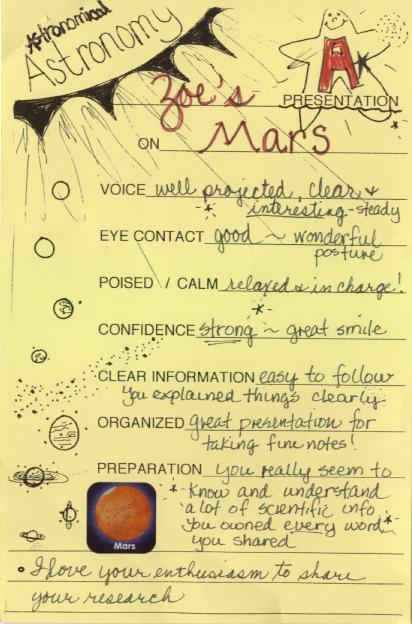 Astronomical
Astronomy
A
Zoe's
PRESENTATION
ON Mars
VOICE well projected, clear &
interesting - steady
EYE CONTACT good ~ wonderful
posture
POISED / CALM relaxed & in charge!
CONFIDENCE strong ~ great smile
CLEAR INFORMATION easy to follow
You explained things clearly.
ORGANIZED great presentation for
taking fine notes!
PREPARATION you really seem to
know and understand
a lot of scientific info
You owned every word
you shared
Mars
I love your enthusiasm to share
your research